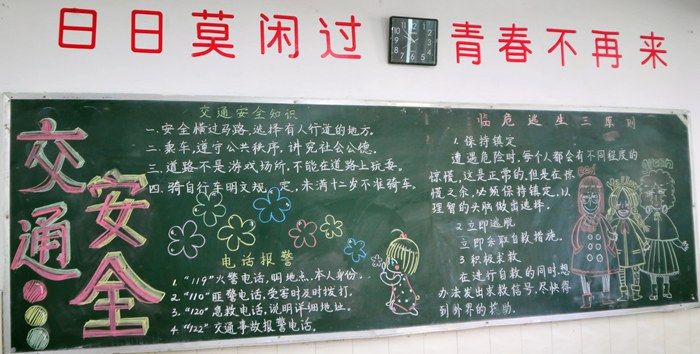 日日莫闲过 青春不再来
交通
安全
交通安全知识
一.安全横过马路,选择有人行道的地方。
二.乘车,遵守公共秩序,讲究社会公德。
三.道路不是游戏场所,不能在道路上玩耍。
四.骑自行车明文规定,未满十二岁不准骑车。
电话报警
1."119"火警电话,明地点.本人身份.
2."110"匪警电话,受害时及时拨打.
3."120"急救电话,说明详细地址.
4."122"交通事故报警电话.
临危逃生三原则
1.保持镇定
遭遇危险时,每个人都会有不同程度的
惊慌,这是正常的,但是在惊
慌之余,必须保持镇定,以
理智的头脑做出选择.
2.立即逃脱
立即采取自救措施.
3.积极求救
在进行自救的同时,想
办法发出求救信号,尽快得
到外界的援助.